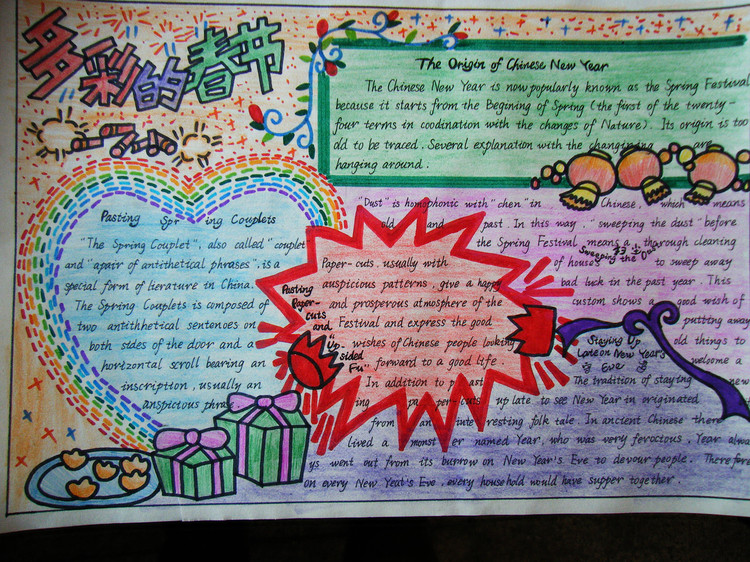 多彩的春节
The Origin of Chinese New Year
The Chinese New Year is now popularly known as the Spring Festival
because it starts from the Begining of Spring (the first of the twenty-
four terms in coodination with the changes of Nature). Its origin is too
old to be traced. Several explanation with the changining are
hanging around.
Pasting Spr ing Couplets
"The Spring Couplet", also called "couplet
and "apair of antithetical phrases", is a
special form of lierature in China.
The Spring Couplets is composed of
two antithhetical sentences on
both sides of the door and a
horizontal scroll bearing an
inscription, usually an
anspicious phrase
"Dust" is homophonic with "chen" in Chinese, which means
old and past. In this way, "sweeping the dust" before
the Spring Festival means a thorough cleaning
of houses to sweep away
bad luck in the past year. This
custom shows a good wish of
putting away
old things to
welcome a
new
Sweeping the Dust
Pasting
Paper-
cuts
and
"Up-
sided
Fu"
Paper-cuts, usually with
auspicious patterns, give a happy
and prosperous atmosphere of the
Festival and express the good
wishes of Chinese people looking
forward to a good life.
In addction to past
ing paper-cuts
Staying Up
Lateon New Year's
Eve
The tradition of staying
up late to see New Year in originated
from an inte resting folk tale. In ancient Chinese there
lived a monst er named Year, who was very ferocious. Year alwa
ys went out from its burrow on New Year's Eve to devour people. Therefore
on every New Year's Eve, every household would have supper together.